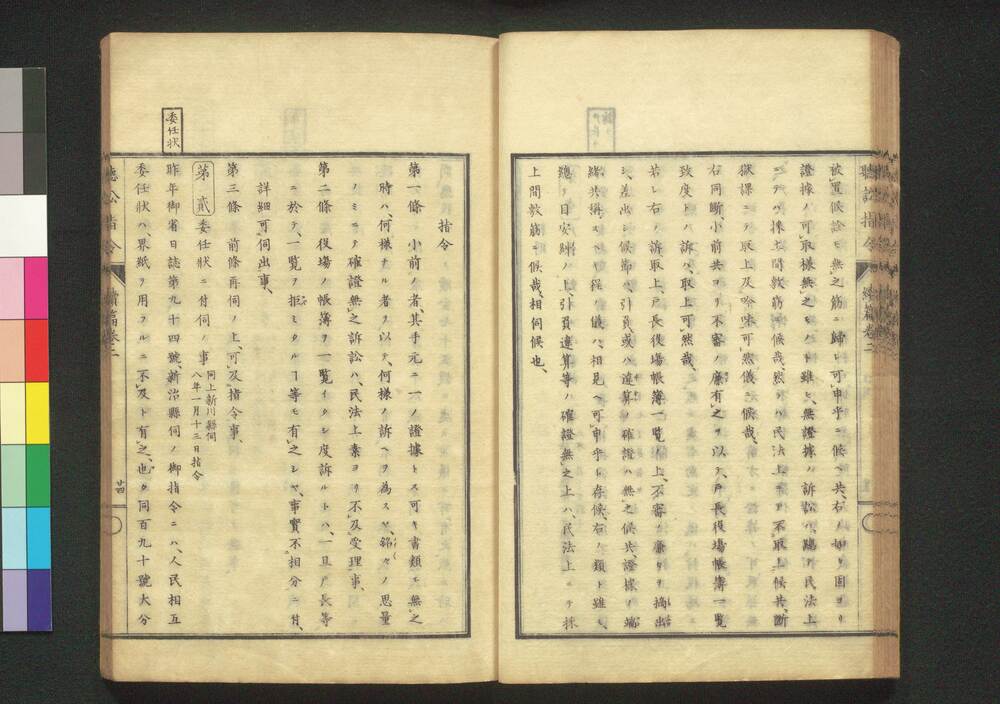 被置候詮モ無之筋ニ歸シ可申乎ニ候ヘ共、右ノ如キ固ヨリ
證據ノ可取様無之モノト雖モ、無證據ノ訴訟ハ賜リ民法上
ニテハ採上間敷筋ニ候哉、然ラハ民法上ニテ不取上候共、斷
獄課ニテ取上及吟味可然儀ニ候哉、
右同斷、小前共ヨリ不審ノ廉有之ヲ以テ、戸長役場帳簿一覧
致度トノ訴ハ、取上可然哉、
若シ右ノ訴取上、戸長役場帳簿一覧ノ上、不審ノ廉々ヲ摘出
シ、差出シ候節ハ、引負或ハ違算ノ確證ハ無之候共、證據ノ端
緒共謂スヘキ程ノ儀ハ、相見ヘ可申乎ト存候、右ノ類ト雖モ、
總テ目安糺ノ上引負違算等ノ確證無之上ハ、民法上ニテ採
上間敷筋ニ候哉、相伺候也、
指令
第一條 小前ノ者、其手元ニ一ノ證據トス可キ書類モ無之
時ハ、何様ナル者ヲ以テ、何様ノ訴ヘヲ為スヤ、銘々ノ思量
ノミニテ確證無之訴訟ハ、民法上素ヨリ不及受理事、
第二條 役場ノ帳簿ヲ一覧イタシ度訴ルトハ、一旦戸長等
ニ於テ、一覧ヲ拒ミタルヿ等モ有之シヤ、事實不相分ニ付、
詳細可伺出事、
第三條 前條再伺ノ上、可及指令事、
委任状
第貳 委任状ニ付伺ノ事 同上新川縣伺 八年一月十三日指令
昨年御省日誌第九十四號、新治縣伺ノ御指令ニハ、人民相互
委任状ハ、界紙ヲ用フルニ不及ト有之、也タ同百九十號大分
聴訟指令 續篇巻二
廿四